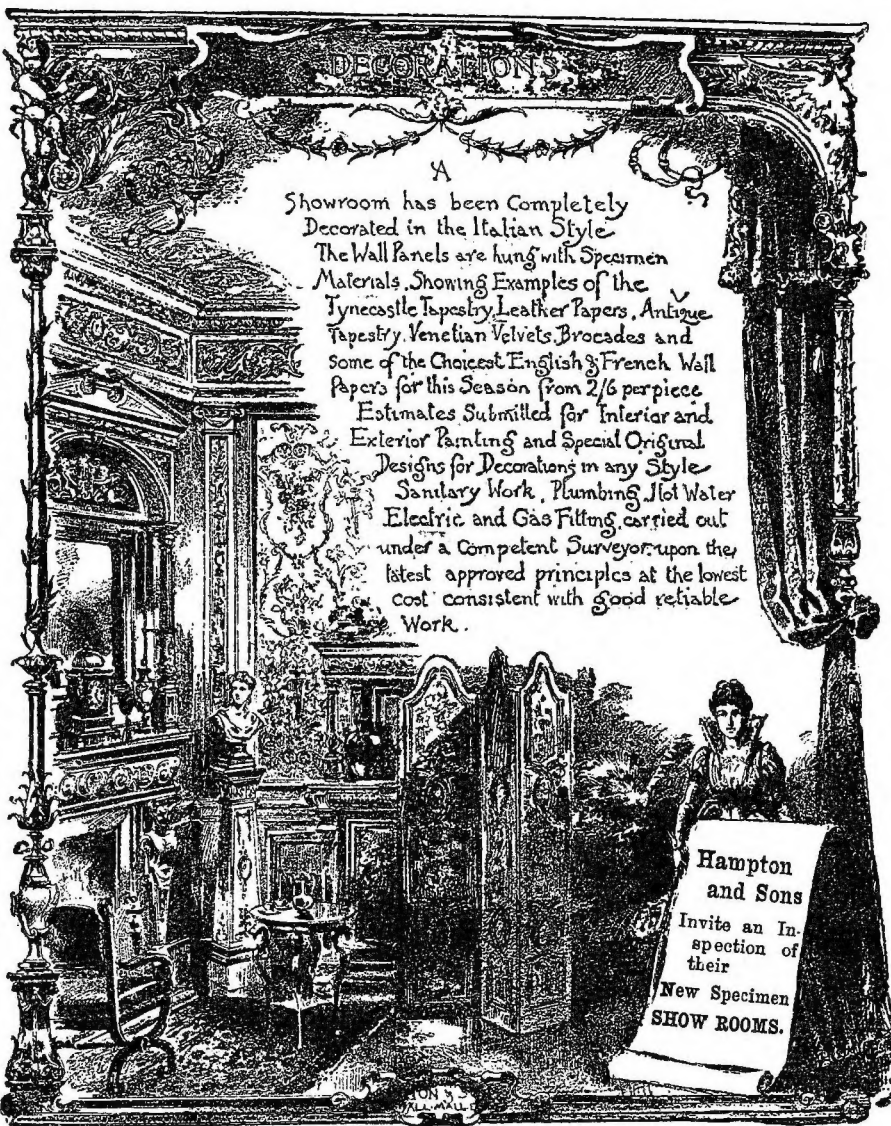 DECORATIONS
A
Showroom has been Completely
Decorated in the Italian Style
The Wall Panels are hung with Specimen
Materials, Showing Examples of the
Tynecastle Tapestry, Leather Papers, Antique
Tapestry, Venetian Velvets, Brocades and
some of the Choicest English & French Wall
Papers for this Season from 2/6 per piece
Estimates Submitted for Interior and
Exterior Painting and Special Original
Designs for Decorations in any Style
Sanitary Work, Plumbing, Hot Water
Electric and Gas Fitting, carried out
under a Competent Surveyor, upon the
latest approved principles at the lowest
cost consistent with good reliable
Work.
Hampton
and Sons
Invite an In-
spection of
their
New Specimen
SHOW ROOMS.